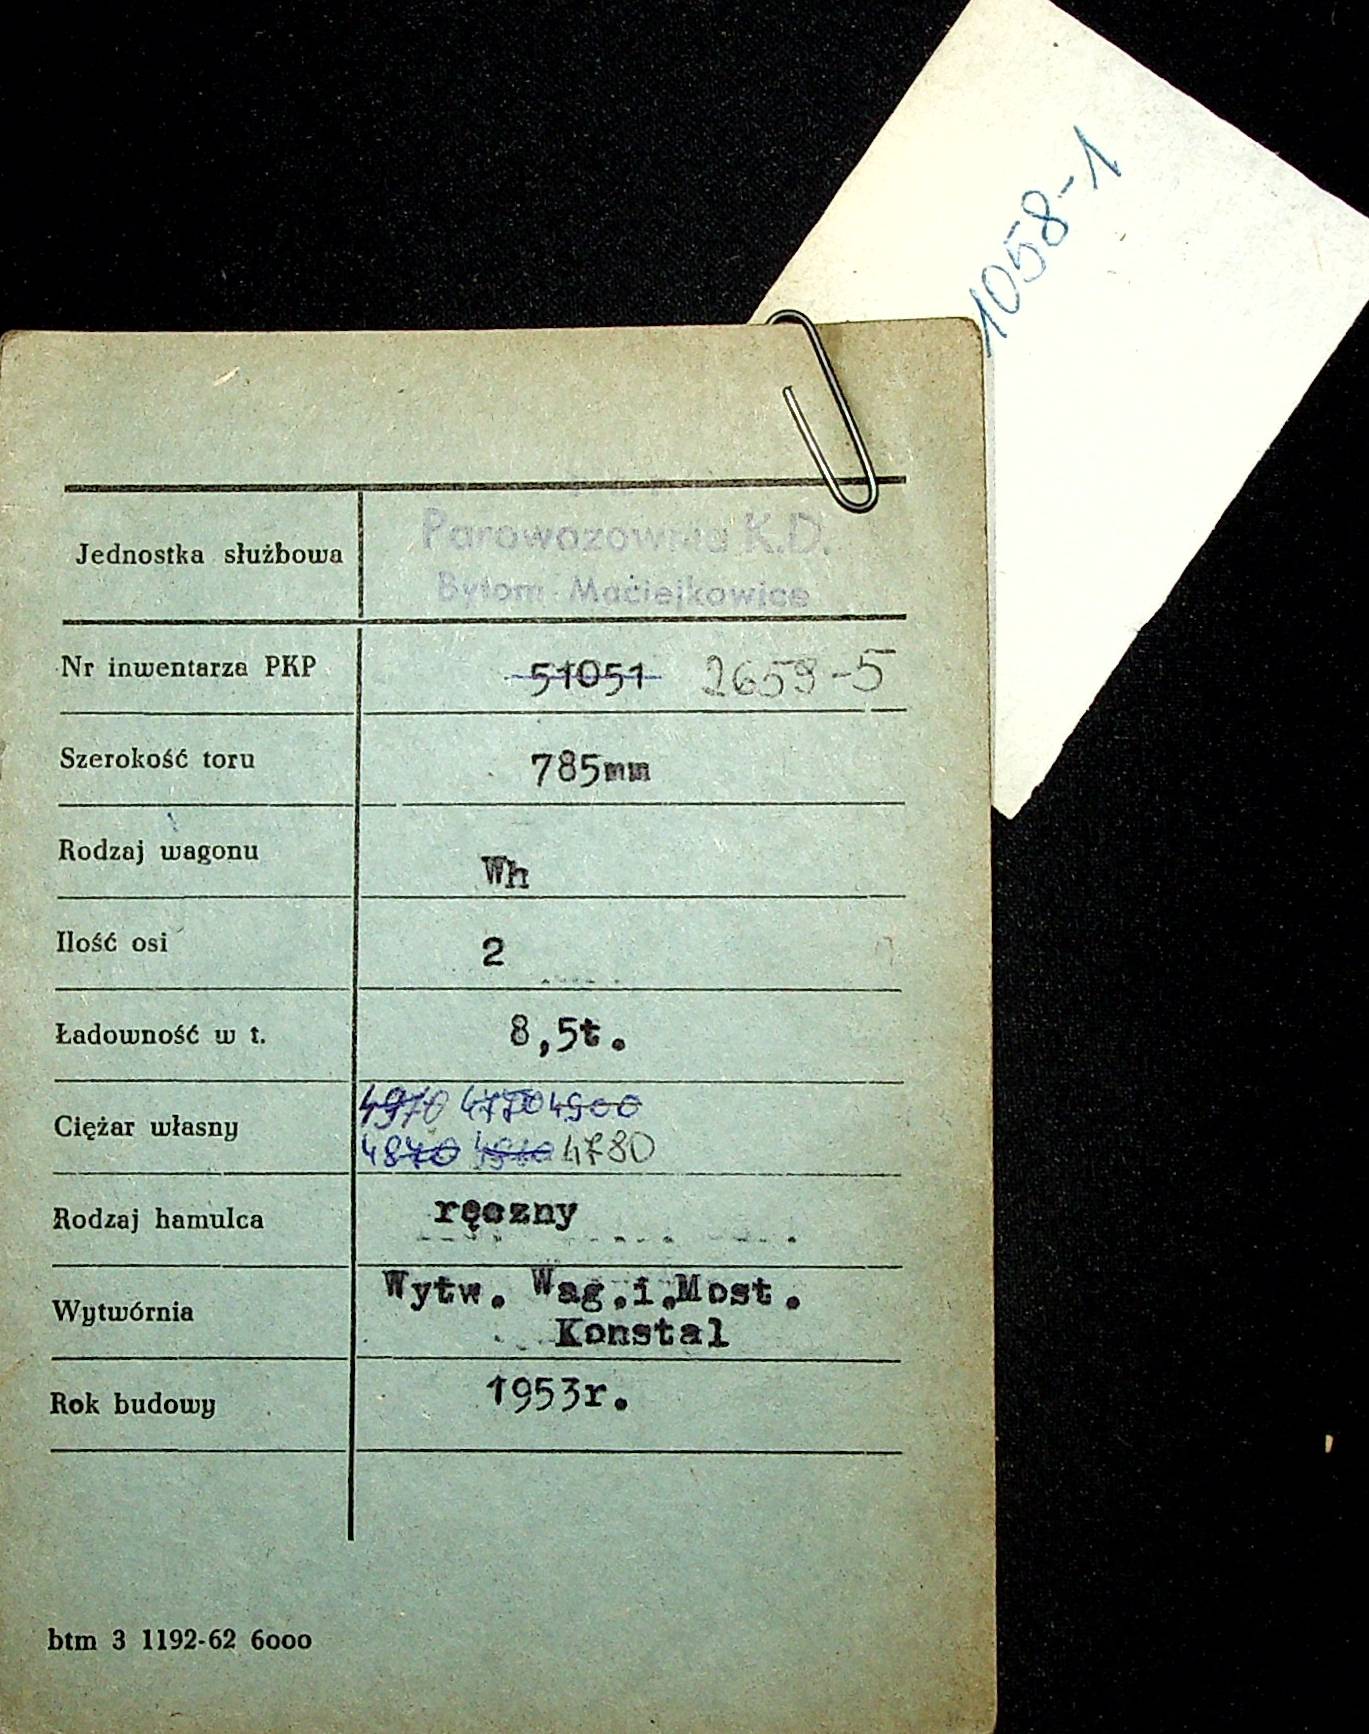 1058-1
Jednostka służbowa
Parowozownia K.D.
Bytom Maciejkowice
Nr inwentarza PKP 51051 2659-5
Szerokość toru 785mm
Rodzaj wagonu Wh
Ilość osi 2
Ładowność w t. 8,5t.
Ciężar własny
4970 4770 4900
4840 4780
Rodzaj hamulca ręczny
Wytwórnia Wytw. Wag.i.Most.
Konstal
Rok budowy 1953r.
btm 3 1192-62 6000